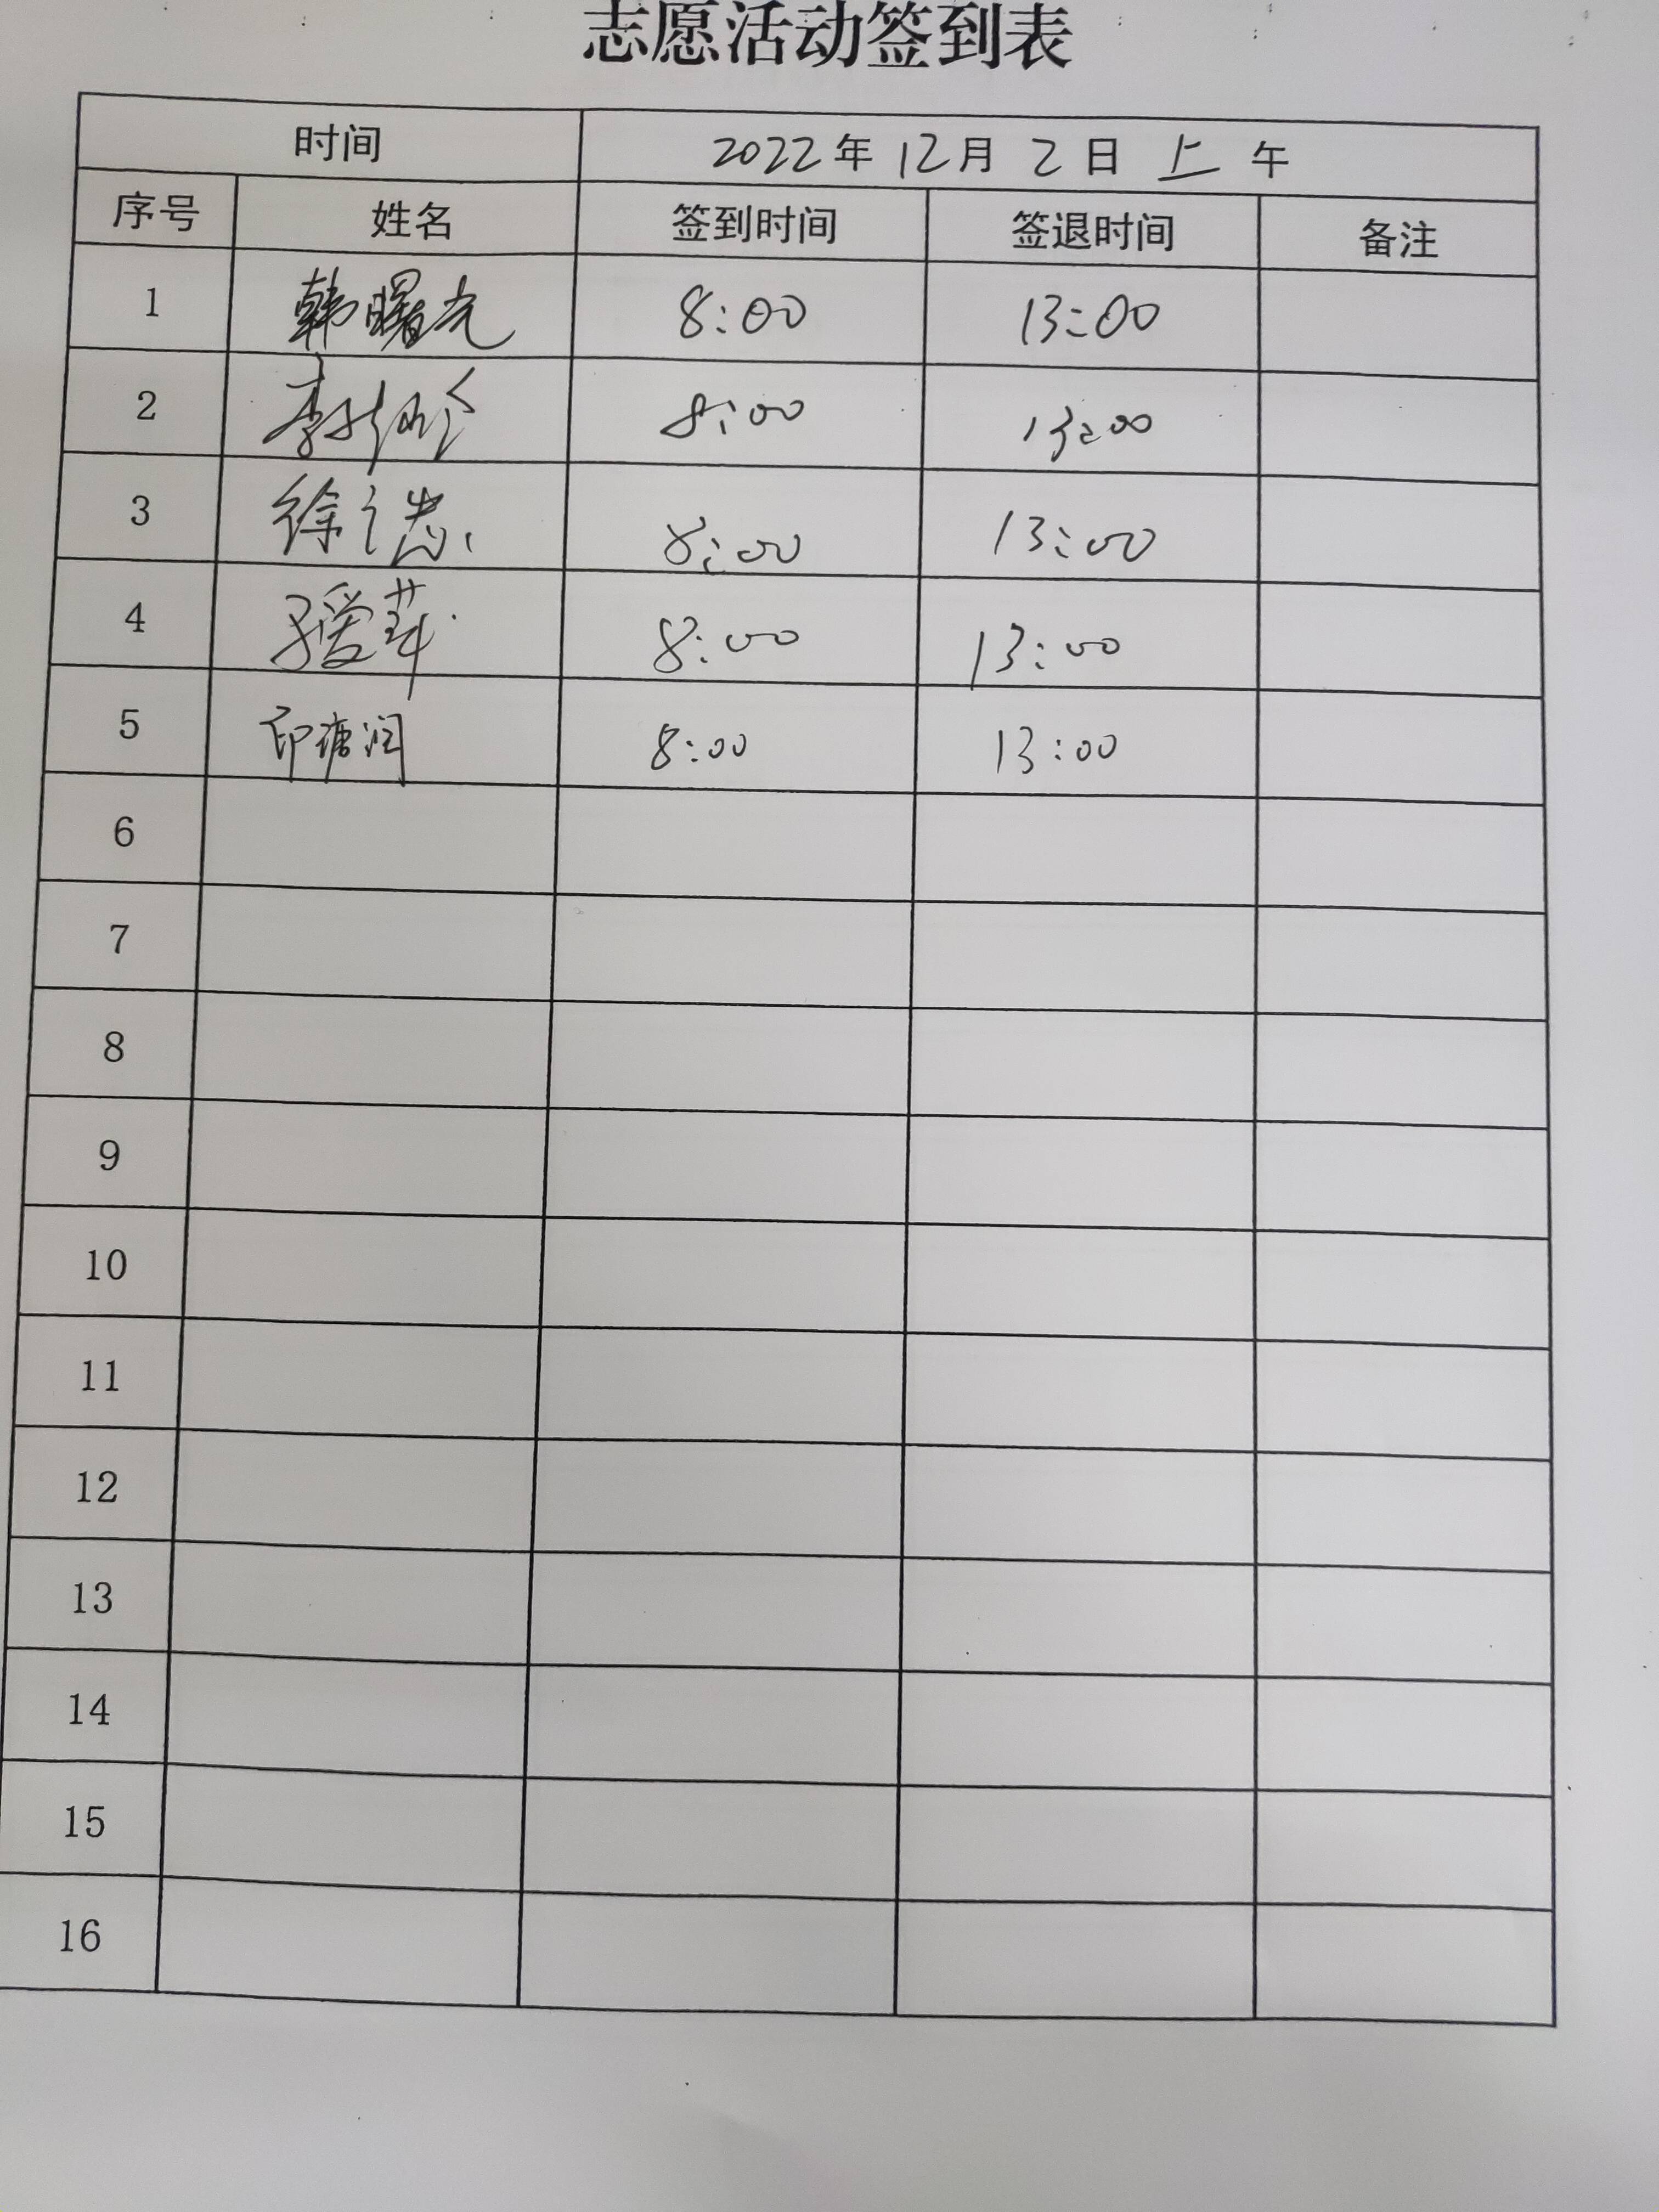 志愿活动签到表
时间 2022年12月2日上午
序号 姓名 签到时间 签退时间 备注
1 韩曙光 8:00 13:00
2 李 8:00 13:00
3 徐 8:00 13:00
4 8:00 13:00
5 印 润 8:00 13:00
6
7
8
9
10
11
12
13
14
15
16